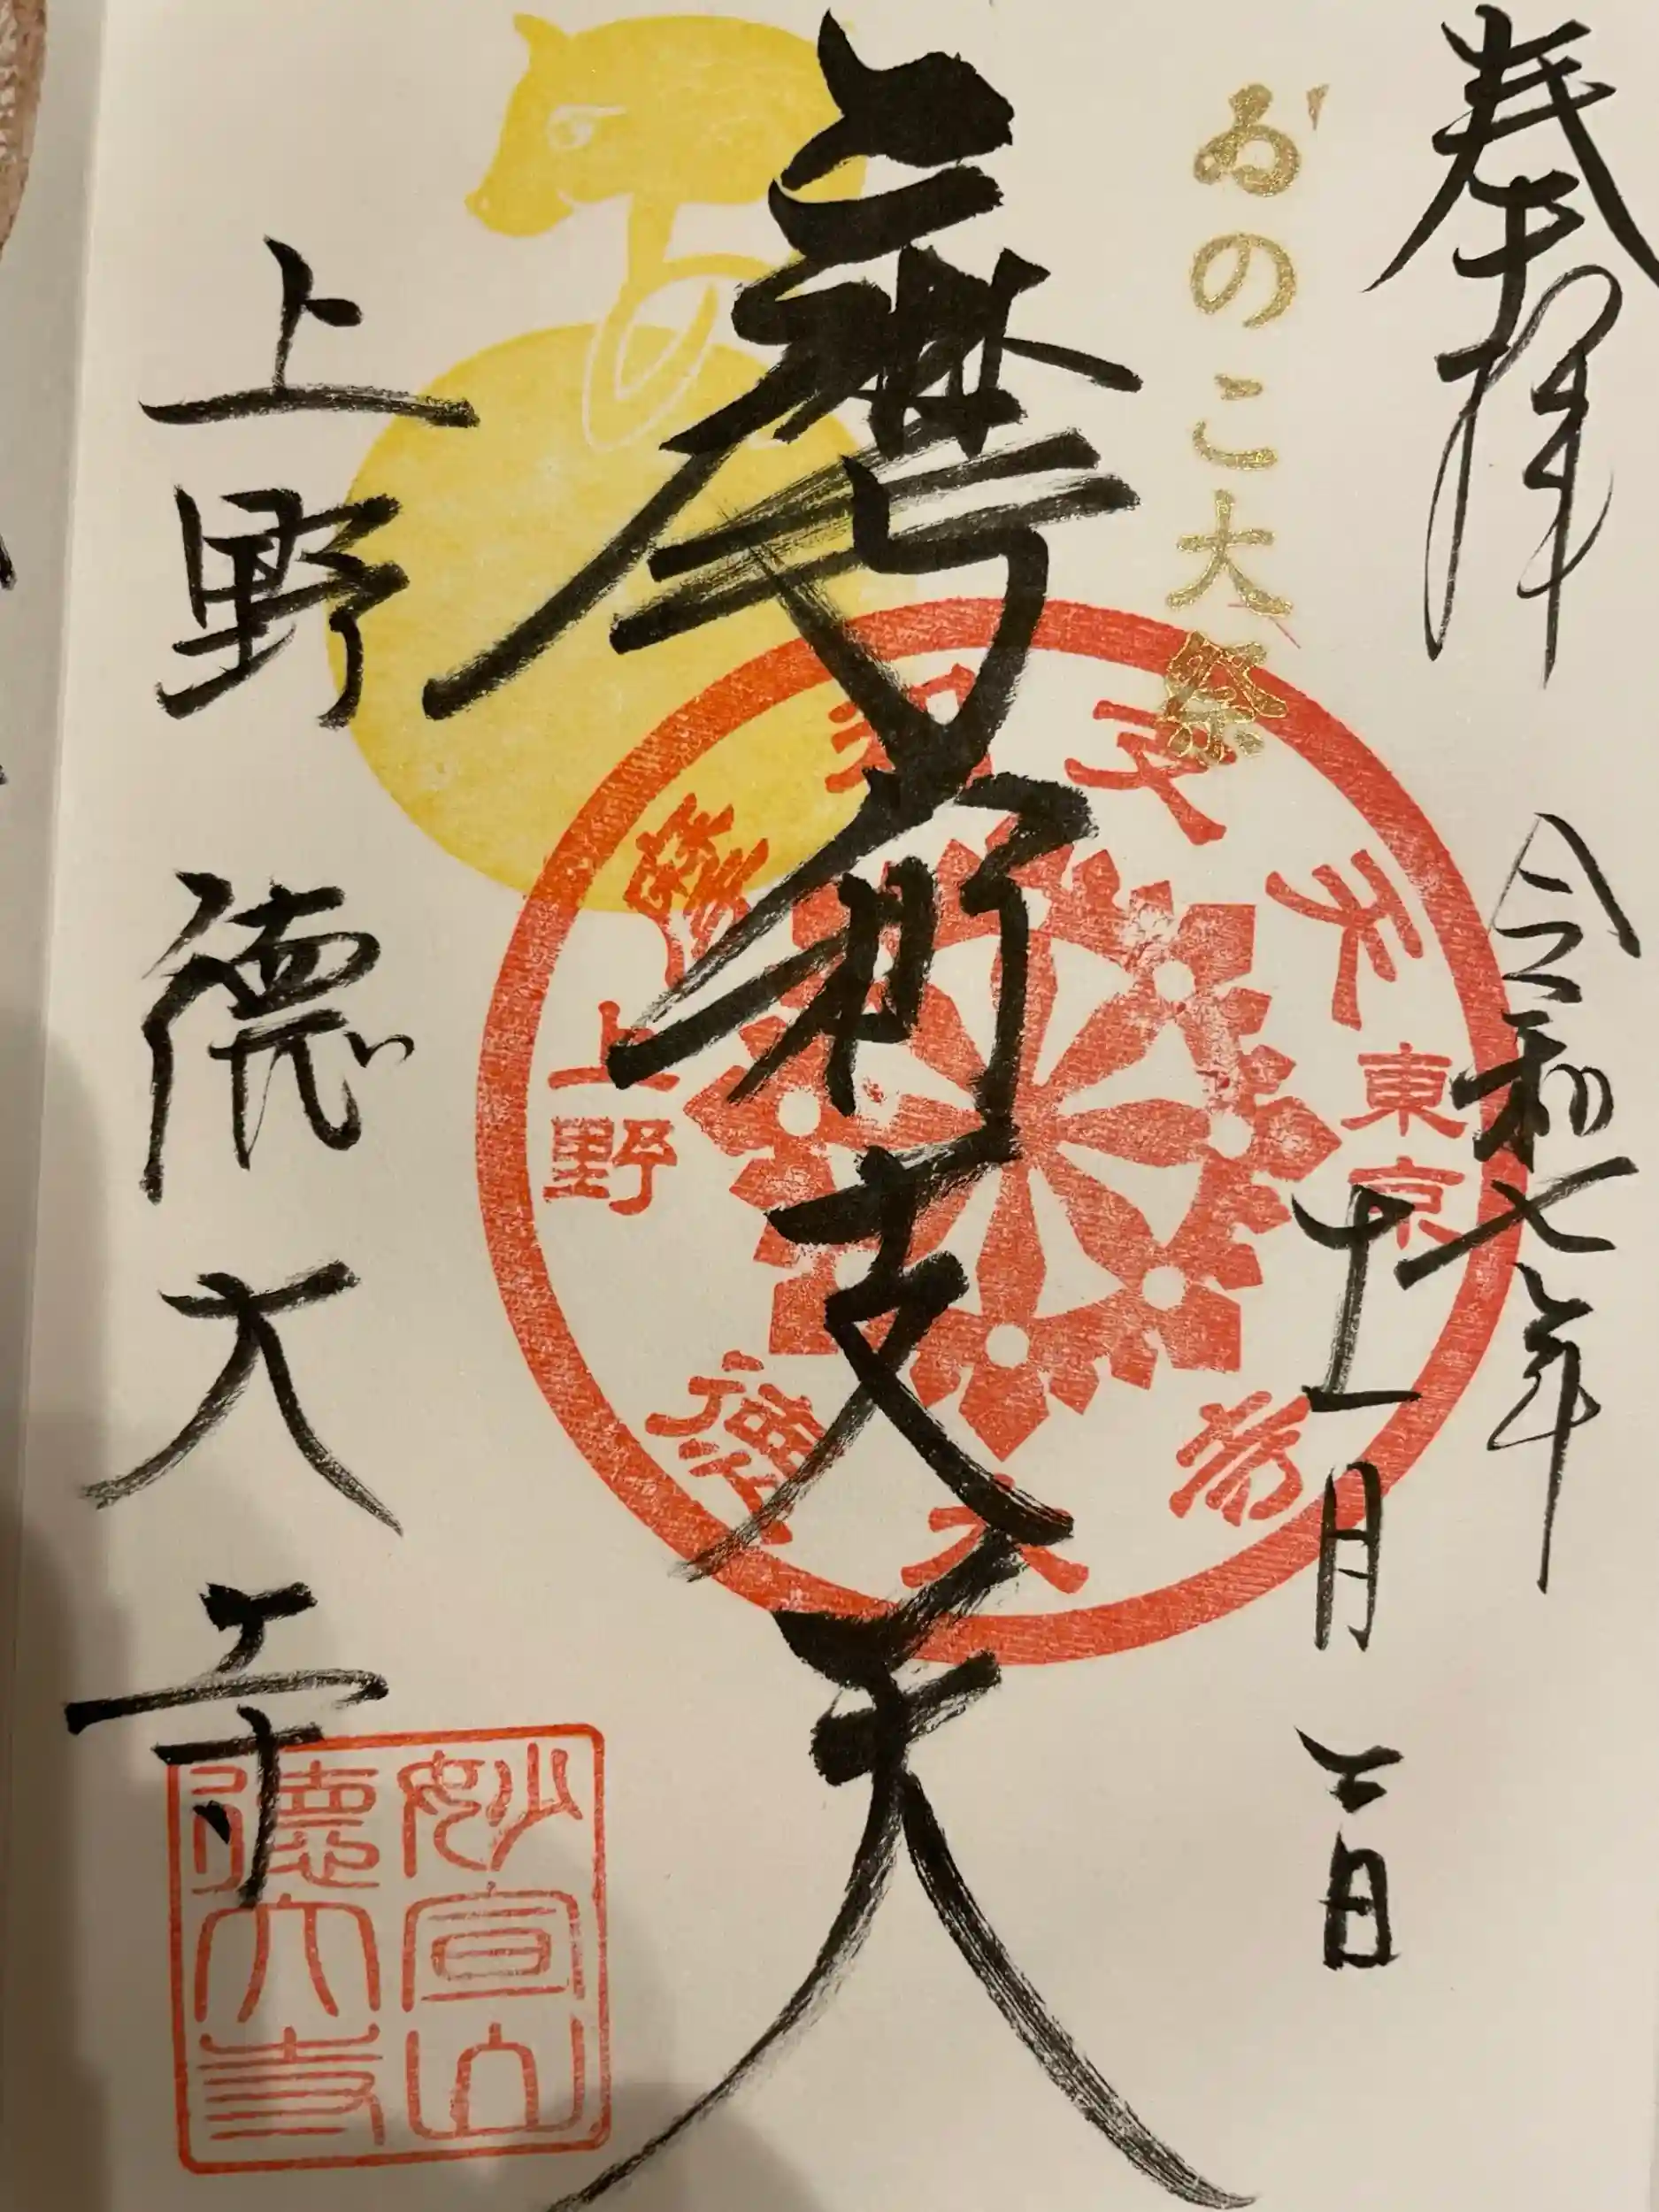 奉拝
令和七年
十一月二日
ゐのこ大祭
摩利支天
上野 徳大寺
摩利支天
東京
上野
徳大寺
妙宣山
徳大寺